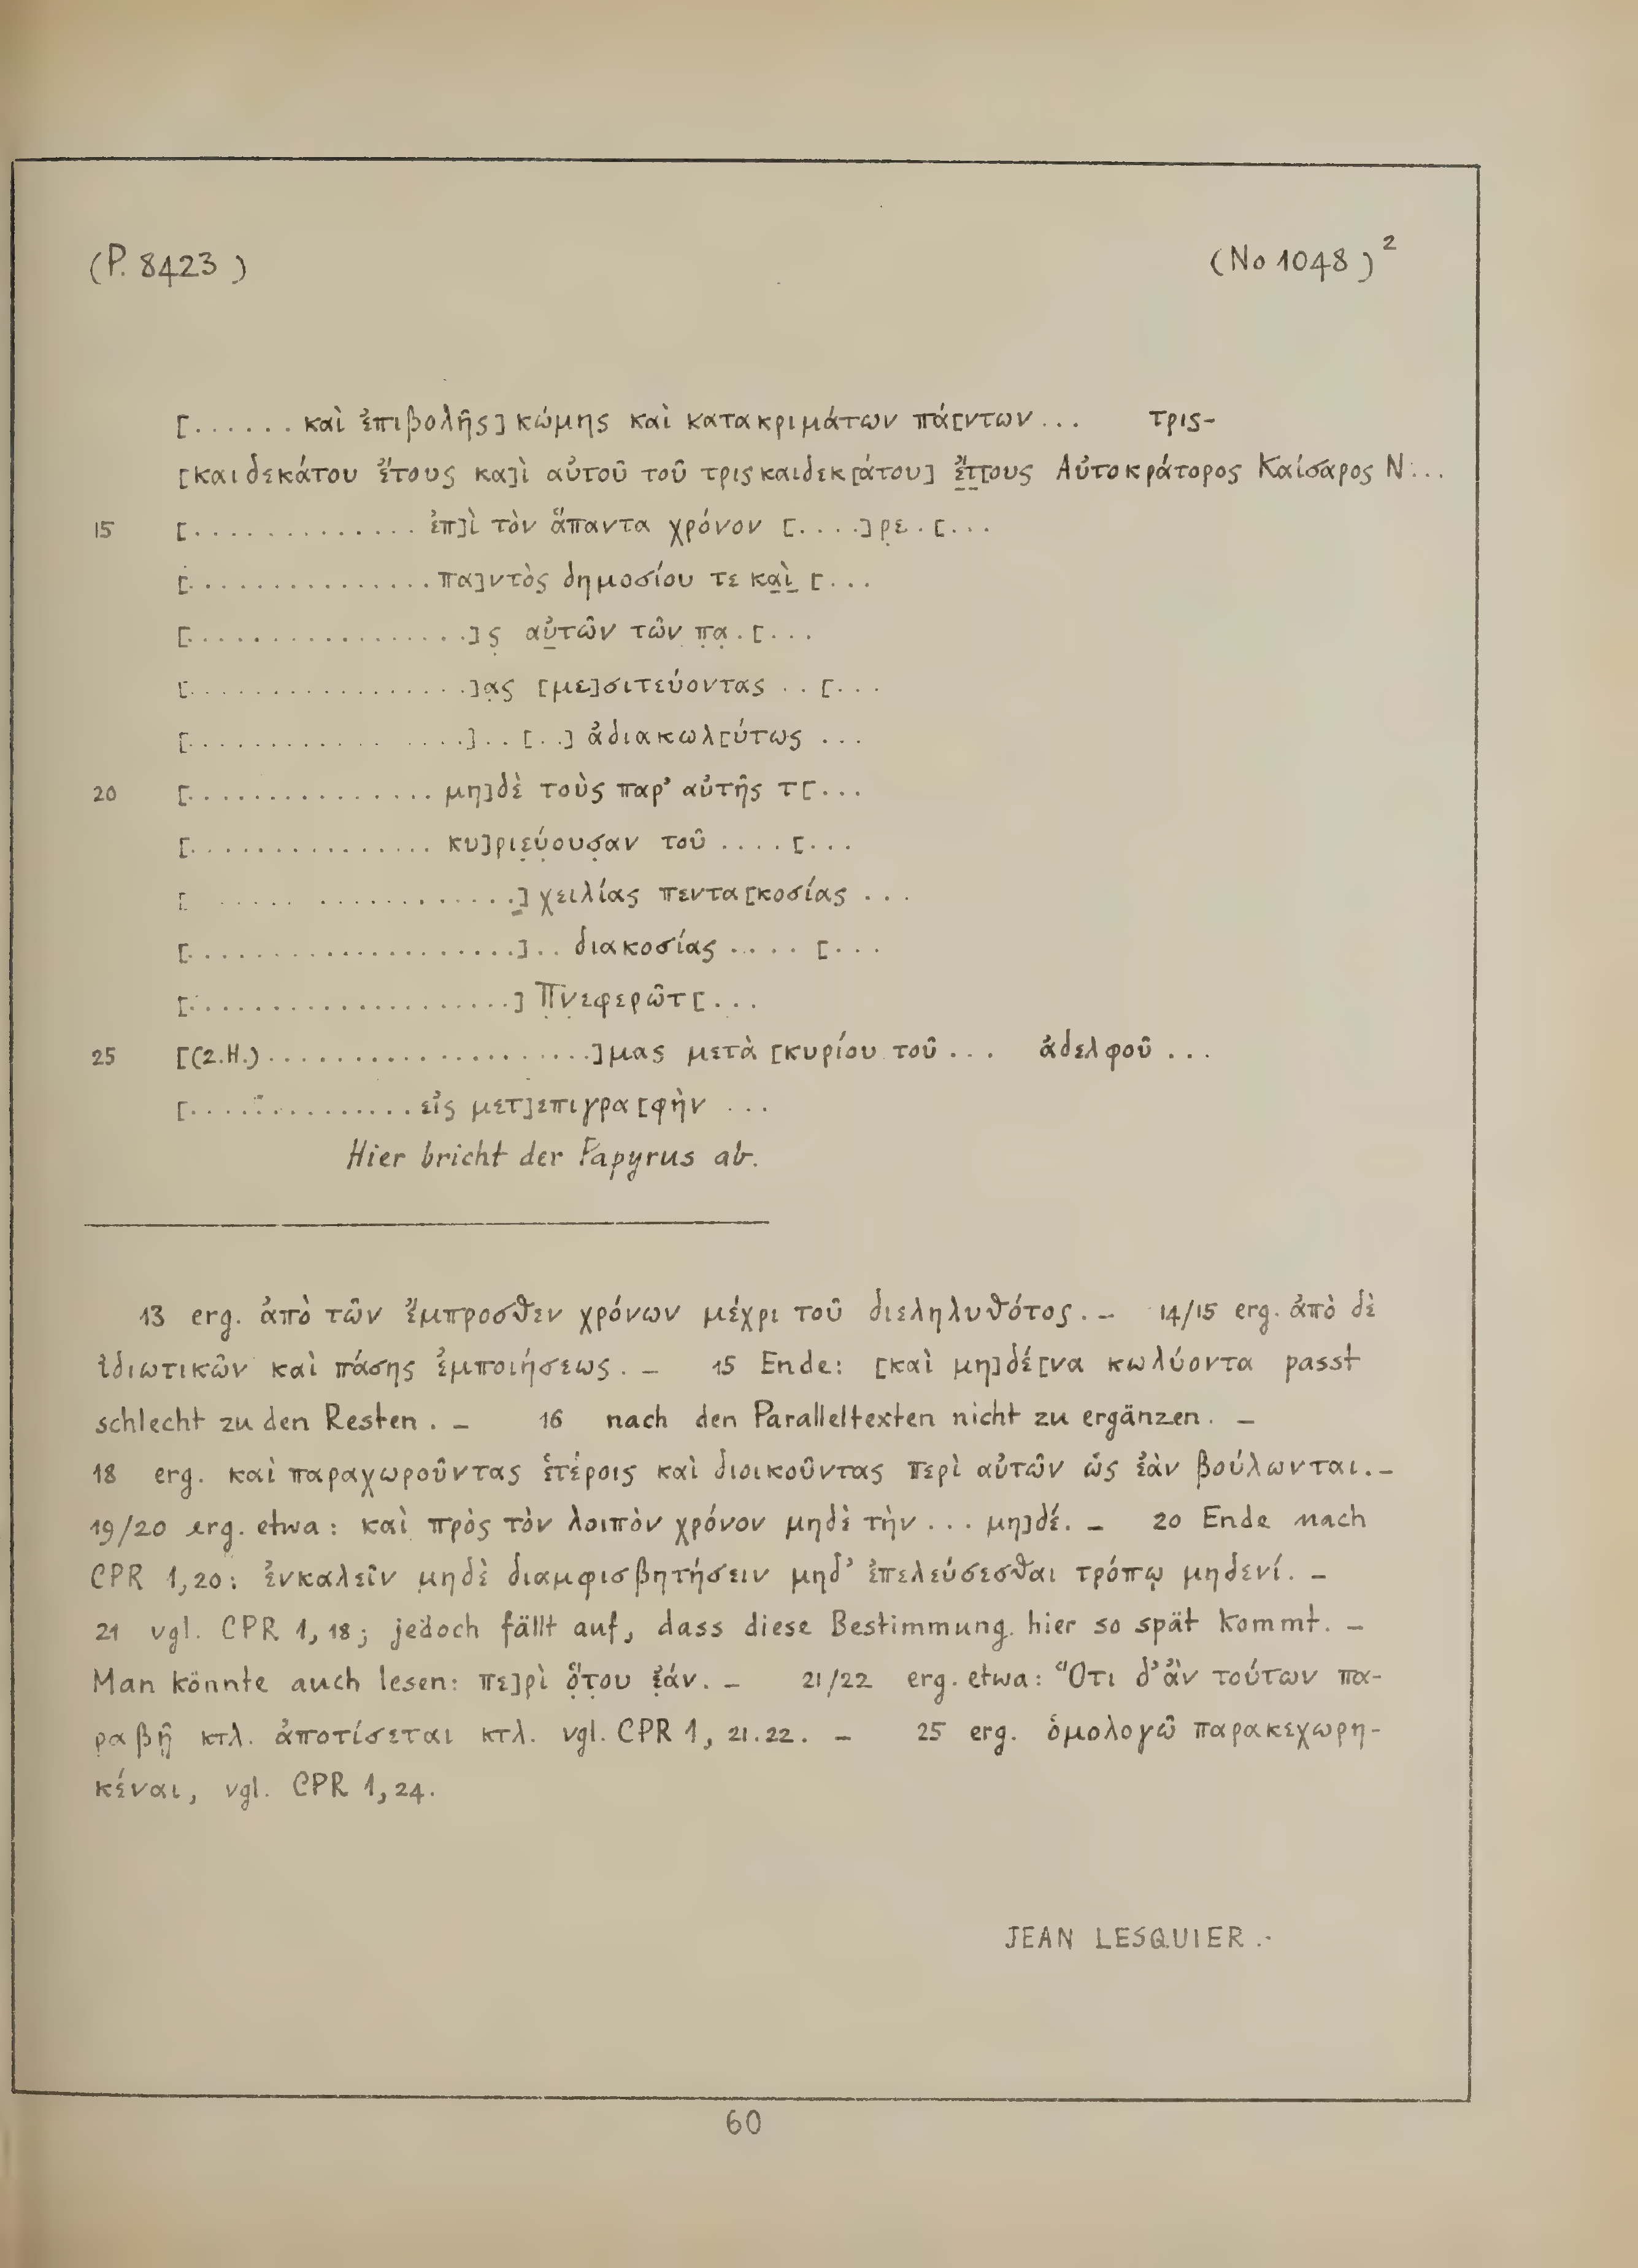 (P. 8423)
(No 1048)²
[...... καὶ ἐπιβολῆς] κώμης καὶ κατακριμάτων πά[ντων ... τρις-
[καιδεκάτου ἔτους κα]ὶ αὐτοῦ τοῦ τριςκαιδεκ[άτου] ἔτ[ους Αὐτοκράτορος Καίσαρος Ν...
15 [............. ἐπ]ὶ τὸν ἅπαντα χρόνον [....]ρε.[...
[.............. πα]ντὸς δημοσίου τε καὶ [...
[.................]ς αὐτῶν τῶν πα.[...
[.................]ας [με]σιτεύοντας ..[...
[.................]..[..] ἀδιακωλ[ύτως ...
20 [............... μη]δὲ τοὺς παρ’ αὐτῆς τ[...
[............... κυ]ριεύουσαν τοῦ ....[...
[....................] χειλίας πεντα[κοσίας ...
[....................].. διακοσίας ....[...
[....................] Πνεφερῶτ[...
25 [(2.H.)....................]μας μετὰ [κυρίου τοῦ ... ἀδελφοῦ ...
[.............. εἰς μετ]επιγρα[φὴν ...
Hier bricht der Papyrus ab.
13 erg. ἀπὸ τῶν ἔμπροσθεν χρόνων μέχρι τοῦ διεληλυθότος. – 14/15 erg. ἀπὸ δὲ
ἰδιωτικῶν καὶ πάσης ἐμποιήσεως. – 15 Ende: [καὶ μη]δέ[να κωλύοντα passt
schlecht zu den Resten. – 16 nach den Paralleltexten nicht zu ergänzen. –
18 erg. καὶ παραχωροῦντας ἑτέροις καὶ διοικοῦντας περὶ αὐτῶν ὡς ἐὰν βούλωνται. –
19/20 erg. etwa: καὶ πρὸς τὸν λοιπὸν χρόνον μηδὲ τὴν ... μη]δέ. – 20 Ende nach
CPR 1,20: ἐνκαλεῖν μηδὲ διαμφισβητήσειν μηδ’ ἐπελεύσεσθαι τρόπῳ μηδενί. –
21 vgl. CPR 1,18; jedoch fällt auf, dass diese Bestimmung hier so spät kommt. –
Man könnte auch lesen: πε]ρὶ ὅτου ἐάν. – 21/22 erg. etwa: Ὅτι δ’ἂν τούτων πα-
ραβῇ κτλ. ἀποτίσεται κτλ. vgl. CPR 1, 21.22. – 25 erg. ὁμολογῶ παρακεχωρη-
κέναι, vgl. CPR 1,24.
JEAN LESQUIER.
60